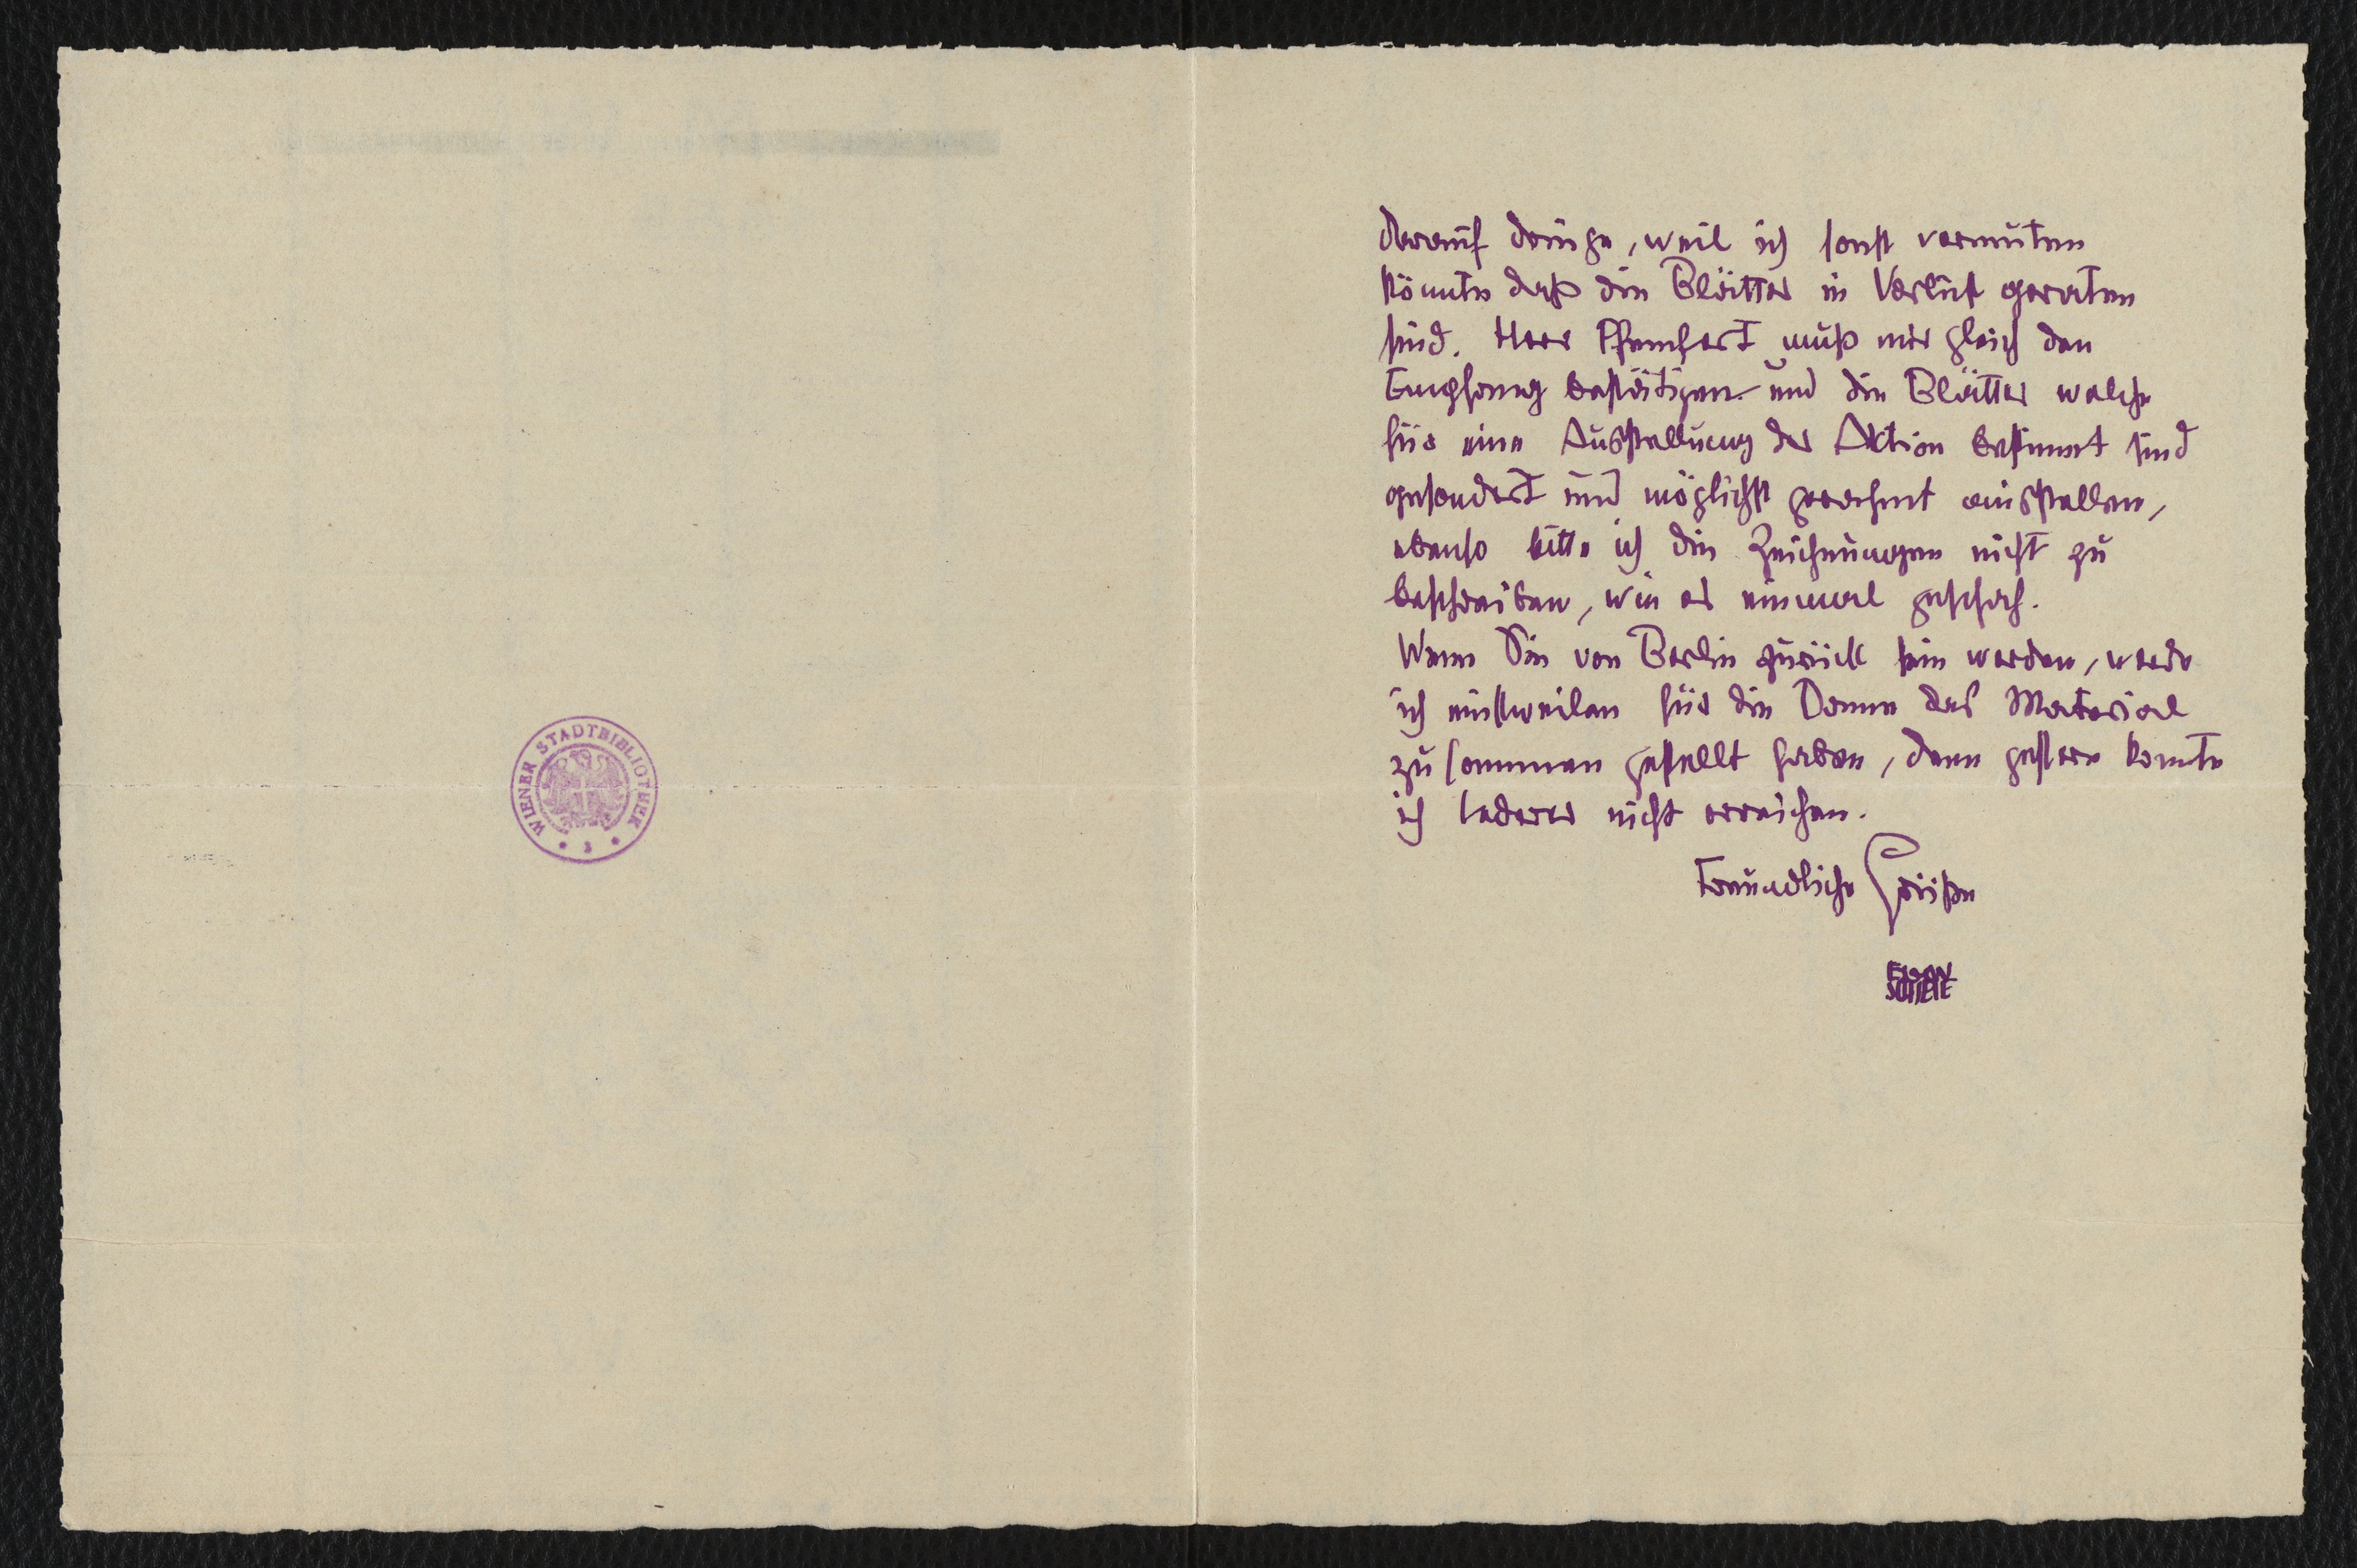 WIENER STADTBIBLIOTHEK
darauf dringe, weil ich sonst vermuten
könnte daß die Blätter in Verlust geraten
sind. Herr Pfemfert muß mir gleich den
Empfang bestätigen und die Blätter welche
für eine Ausstellung der Aktion bestimmt sind
gesondert und möglichst gerahmt ausstellen,
ebenso bitte ich die Zeichnungen nicht zu
beschreiben, wie es einmal geschah.
Wenn Sie von Berlin zurück sein werden, werde
ich einstweilen für die Dame das Material
zusammen gestellt haben, denn gestern konnte
ich Lederer nicht erreichen.
Freundliche Grüße
EGON
SCHIELE